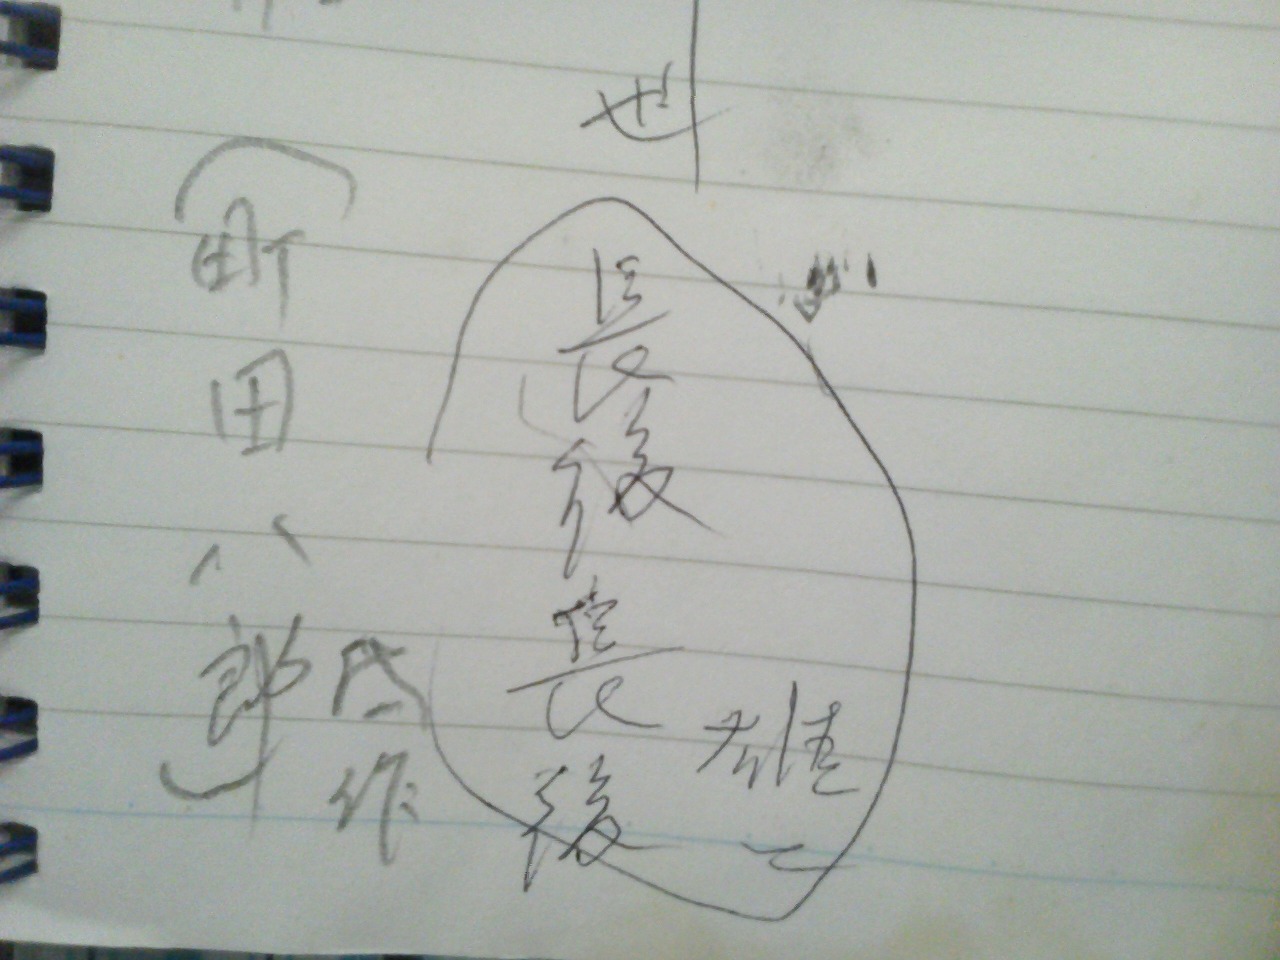 也
雄二
長後
長後
氏作
(町田八郎)